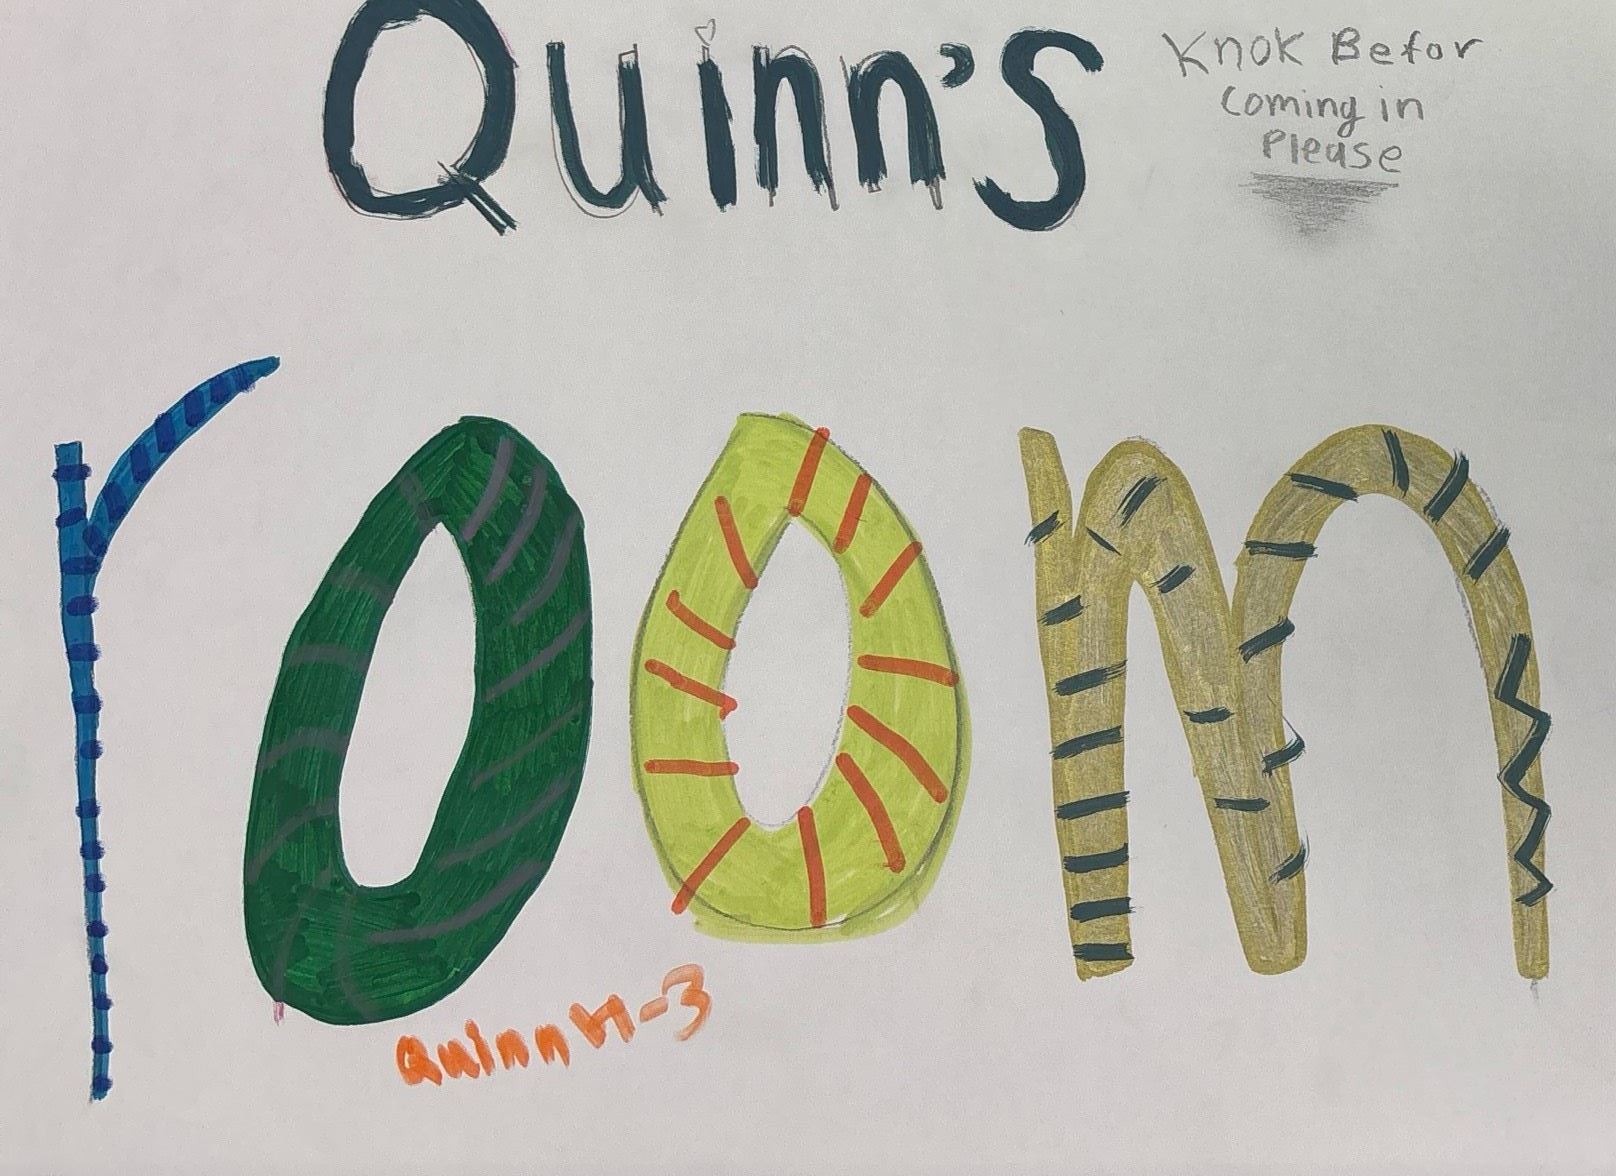 Quinn's
Knok Befor
Coming in
Please
room
Quinn H-3